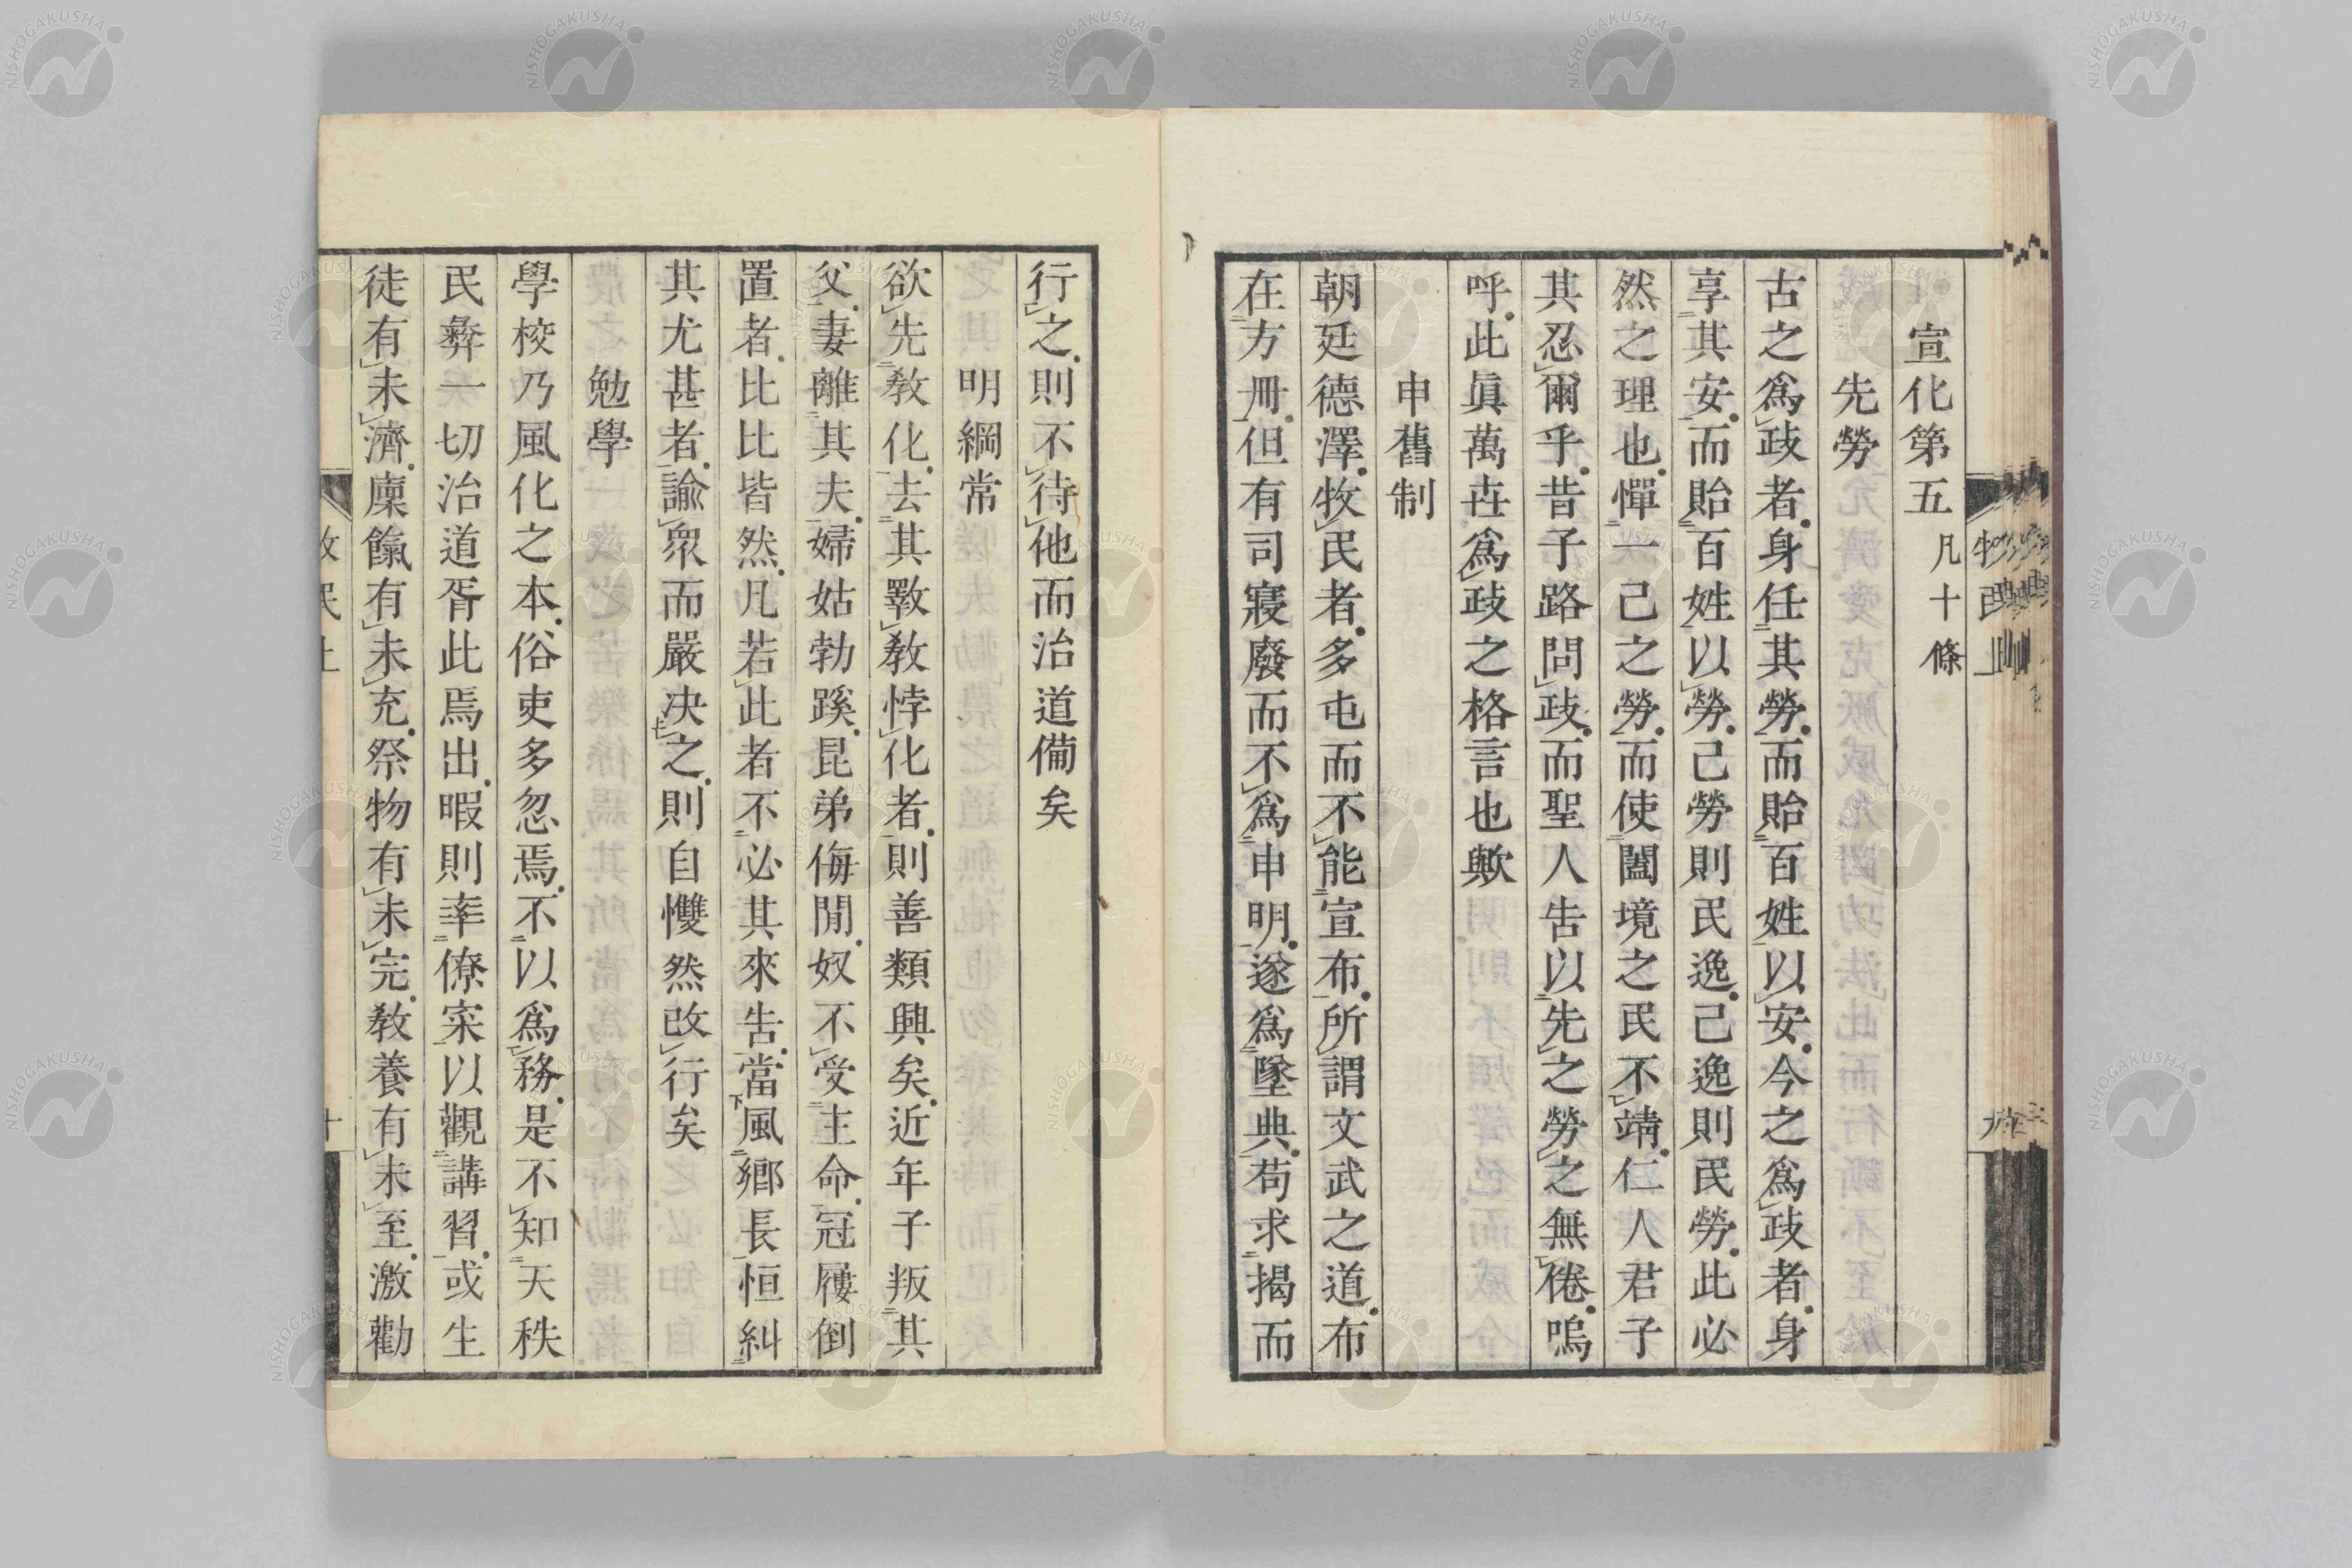 宣化第五凡十條
先勞
古之爲政者身任其勞而貽百姓以安今之爲政者身
享其安而貽百姓以勞己勞則民逸己逸則民勞此必
然之理也憚一己之勞而使闔境之民不靖仁人君子
其忍爾乎昔子路問政而聖人告以先之勞之無倦嗚
呼此眞萬世爲政之格言也歟
申舊制
朝廷德澤牧民者多屯而不能宣布所謂文武之道布
在方冊但有司寢廢而不爲申明遂爲墜典苟求揭而
行之則不待他而治道備矣
明綱常
欲先敎化去其斁敎悖化者則善類興矣近年子叛其
父妻離其夫婦姑勃蹊昆弟侮鬩奴不受主命冠屨倒
置者比比皆然凡若此者不必其來告當風鄉長恒糾
其尤甚者諭衆而嚴决之則自戄然改行矣
勉學
學校乃風化之本俗吏多忽焉不以爲務是不知天秩
民彝一切治道胥此焉出暇則率僚寀以觀講習或生
徒有未濟廩餼有未充祭物有未完敎養有未至激勸
NISHOGAKUSHA